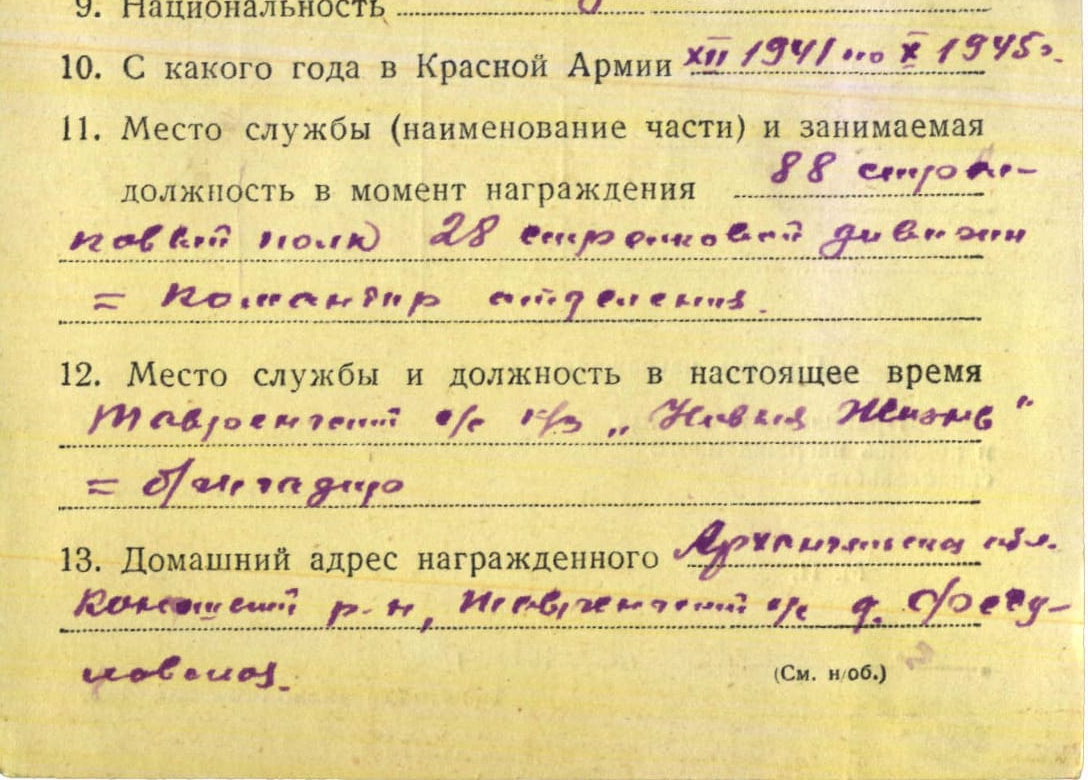 9. Национальность
10. С какого года в Красной Армии XII 1941 по X 1945 г.
11. Место службы (наименование части) и занимаемая
должность в момент награждения 88 стрел-
ковый полк 28 стрелковой дивизии
= командир отделения.
12. Место службы и должность в настоящее время
Тавреньгский с/с к/з „Новая Жизнь"
= бригадир
13. Домашний адрес награжденного Архангельская обл.
Коношский р-н, Тавреньгский с/с д.
(См. н/об.)